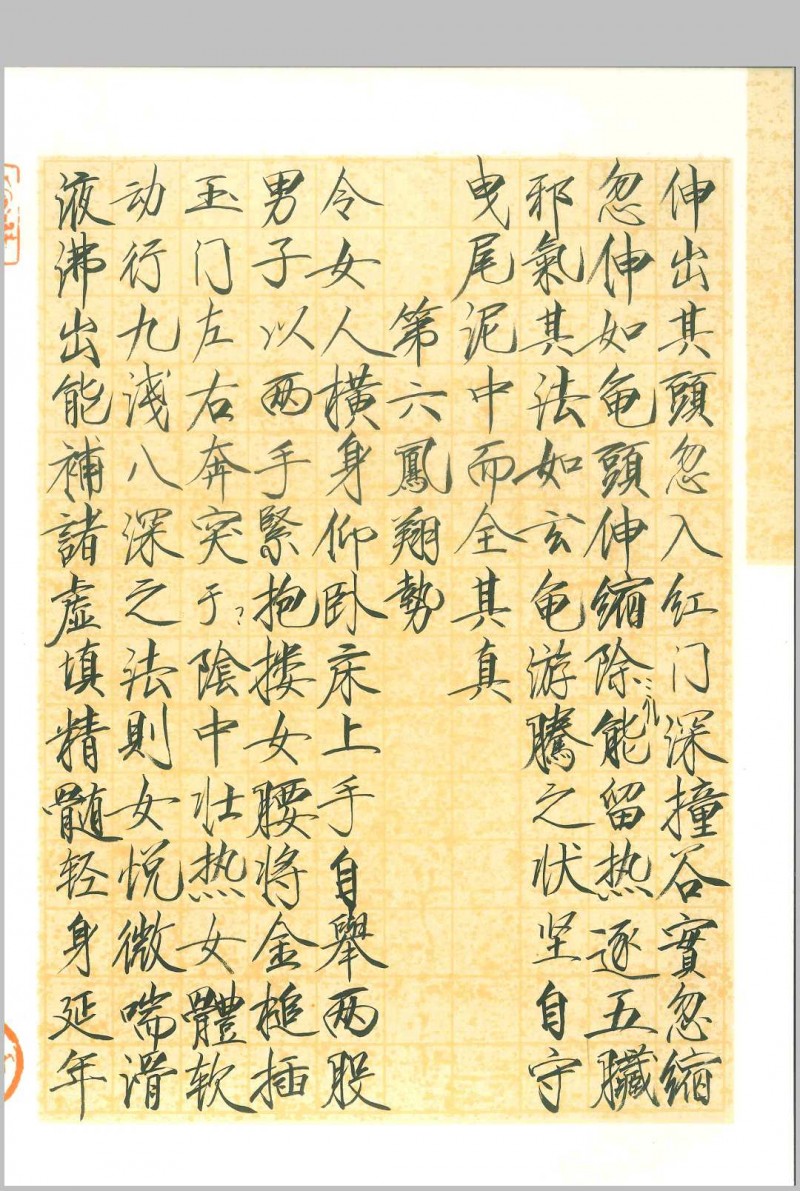 伸出其頭忽入红门深撞谷實忽缩
忽伸如龟頭伸缩除能留热逐五臟
邪氣其法如玄龟游騰之状坚自守
曳尾泥中而全其真
第六鳳翔勢
令女人横身仰卧床上手自舉两股
男子以两手緊抱搂女腰将金槌插
玉门左右奔突于陰中壮热女體软
动行九浅八深之法則女悦微喘滑
液沸出能補諸虚填精髓轻身延年